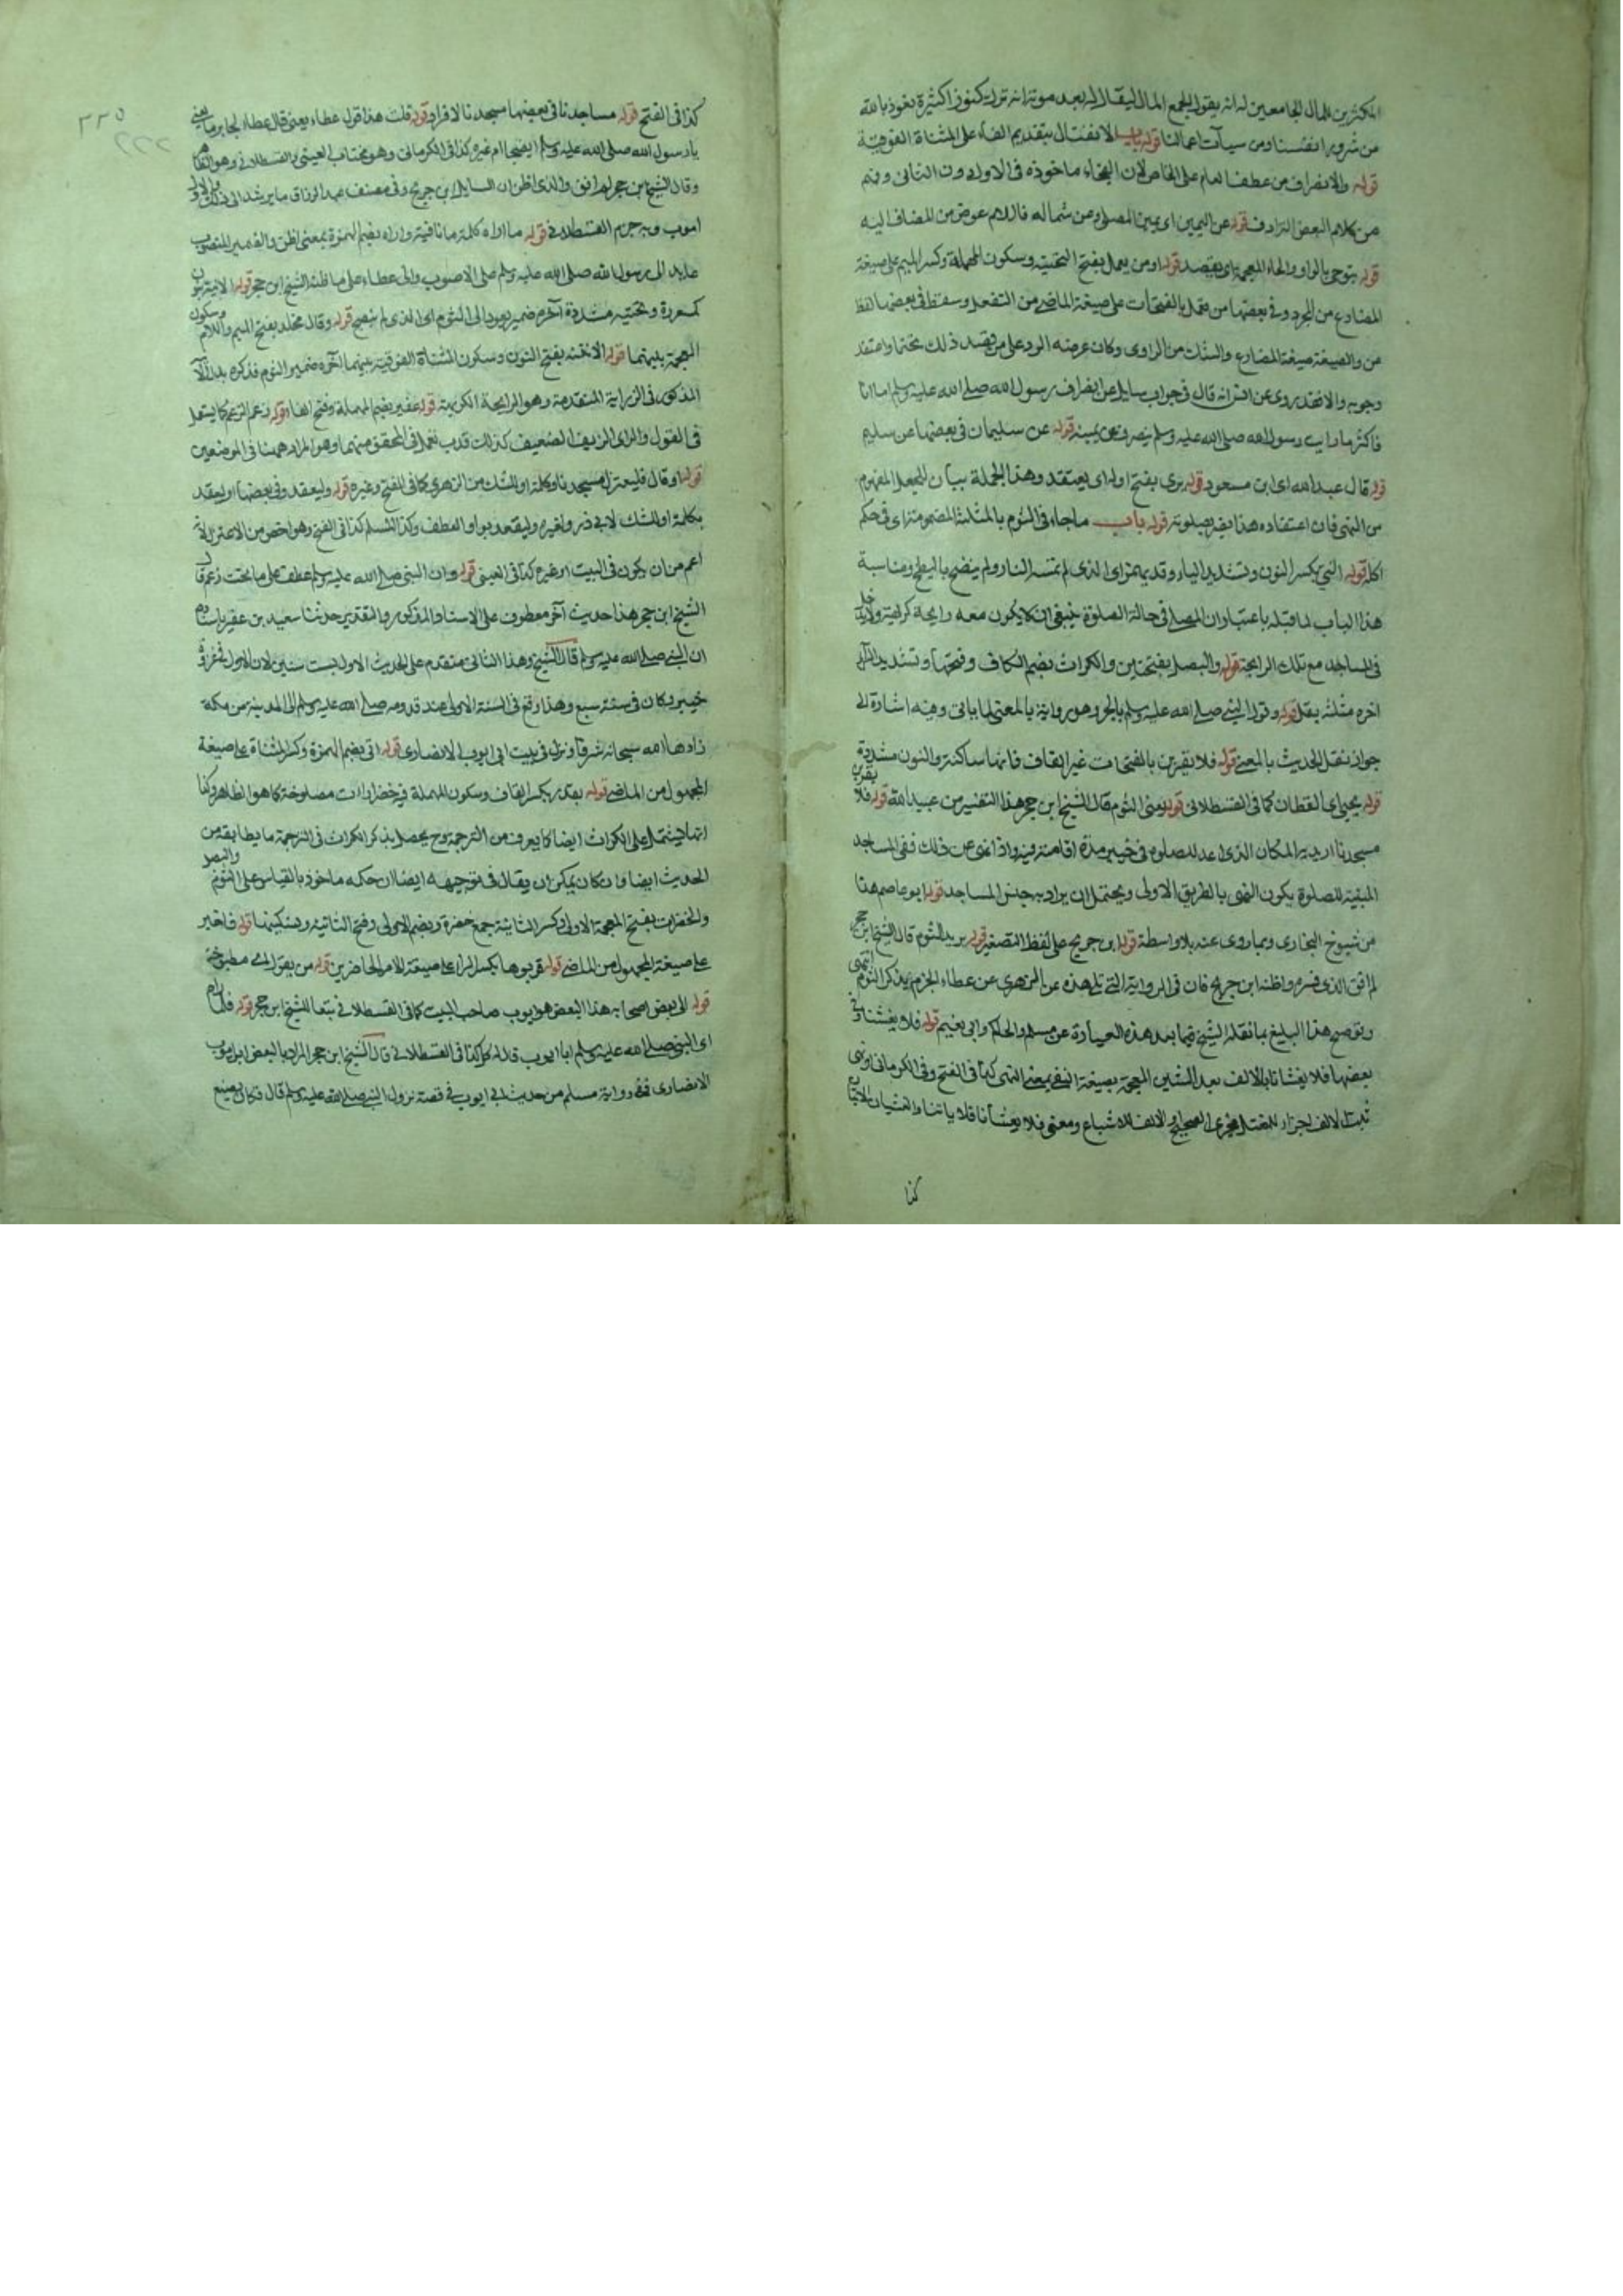 المكثرين المال الجامعين له انه يقول الجمع المال ليقال له بعد موته انه ترك كنوزا كثيرة نعوذ بالله
من شرور انفسنا ومن سيآت اعمالنا قوله باب الانفتال بتقديم الفاء على المثناة الفوقية
قوله والانصراف من عطف العام على الخاص لان ماخوذ فى الاول دون الثانى
من كلام البعض الترادف قوله عن اليمين اى يمين المصلى وعن شماله فاللام عوض من المضاف اليه
قوله يتوخى بالواو والخاء المعجمة اى يقصد قوله او من يعمل بفتح التحتية وسكون المهملة وكسر الميم على صيغة
المضارع من المجرد وفى بعضها من تعمد بالفتحات على صيغة الماضى من التفعل وسقط فى بعضها لفظ
من والصيغة صيغة المضارع والشك من الراوى وكان غرضه الرد على من يقصد ذلك واعتقد
وجوبه والا فقد روى عن انس انه قال فى جواب سايل عن انصراف رسول الله صلى الله عليه وسلم اما انا
فاكثر ما رايت رسول الله صلى الله عليه وسلم ينصرف عن يمينه قوله عن سليمان فى بعضها عن سليم
قوله قال عبد الله اى ابن مسعود قوله يرى بفتح اوله اى يعتقد وهذا الجملة بيان للجعل المفهوم
من النهى فان اعتقاده هذا يضر بصلوته قوله باب ما جاء فى الثوم بالمثلثة المضمومة اى فى حكم
اكله قوله النى بكسر النون وتشديد الياء وقد يهمز اى الذى لم تمسه النار ولم ينضج بالطبخ ومناسبة
هذا الباب لما قبله باعتبار ان المصلى فى حالة الصلوة ينبغى ان لا يكون معه رايحة كراهية ولا يدخل
فى المساجد مع تلك الرايحة قوله والبصل بفتحتين والكراث بضم الكاف وفتحها وتشديد الراء
اخره مثلثة بقل قوله وقول النبى صلى الله عليه وسلم بالجر وهو رواية بالمعنى لما ياتى وفيه اشارة الى
جواز نقل الحديث بالمعنى قوله فلا يقربن بالفتحات غير القاف فانها ساكنة والنون مشددة
قوله يحيى اى القطان كما فى القسطلانى قوله يعنى الثوم قال الشيخ ابن حجر هذا التفسير من عبيد الله قوله فلا يقربن
مسجدنا اريد به المكان الذى اعد للصلوة فى خيبر مدة اقامته فيه واذا نهى عن ذلك ففى المساجد
المبنية للصلوة يكون النهى بالطريق الاولى ويحتمل ان يراد به جنس المساجد قوله ابو عاصم هذا
من شيوخ البخارى وربما روى عنه بلا واسطة قوله ابن جريج على لفظ التصغير قوله يريد الثوم قال الشيخ ابن حجر
لم اقف الذى فسره واظنه ابن جريج فان فى الرواية التى تلى هذه عن الزهرى عن عطاء الجزم بذكر الثوم انتهى
هذا البليغ بما نقله الشيخ فيما بعد هذه العبارة عن مسلم والحاكم وابى نعيم قوله فلا يغشنا وفى
بعضها فلا يغشانا بالالف بعد الشين المعجمة بصيغة النفى بمعنى النهى كذا فى الفتح وفى الكرمانى
الالف اجراء للمعتل مجرى الصحيح والالف للاشباع ومعنى فلا يغشانا فلا ياتنا والغشيان الاتيان
كذا
٢٢٥
٢٢٢
كذا فى الفتح قوله مساجدنا فى بعضها مسجدنا الافراد قوله قلت هذا قول عطاء يعنى قال عطاء لجابر ما يعنى
يا رسول الله صلى الله عليه وسلم ايضجا ام غيره كذا فى الكرمانى وهو مختار العينى والقسطلانى وهو الظاهر
وقال الشيخ ابن حجر لم اقف والذى اظن ان السايل ابن جريج وفى مصنف عبد الرزاق ما يرشد الى ذلك والاول
اصوب وبه جزم القسطلانى قوله ما اراه كلمة ما نافية واراه بضم الهمزة بمعنى اظن والضمير المنصوب
عايد الى رسول الله صلى الله عليه وسلم على الاصوب والى عطاء على ما ظنه الشيخ ابن حجر قوله الا نيه بنون
مكسورة وتحتية مشددة آخره ضمير يعود الى الثوم اى الذى لم ينضج قوله وقال مخلد بفتح الميم واللام وسكون
المعجمة بينهما قوله الا نتنه بفتح النون وسكون المثناة الفوقية بينهما آخره ضمير الثوم فذكره بدل الا
المذكور فى الرواية المتقدمة وهو الرايحة الكريهة قوله عفير بضم المهملة وفتح الفاء قوله زعم الزعم كما يستعمل
فى القول والراى الزيف الضعيف كذلك قد يستعمل فى المحقق منهما وهو المراد ههنا فى الموضعين
قوله او قال فليعتزل مسجدنا وكلمة او للشك من الزهرى كما فى الفتح وغيره قوله وليقعد وفى بعضها او ليقعد
بكلمة او للشك لابى ذر ولغيره وليقعد بواو العطف وكذا لمسلم كذا فى الفتح وهو اخص من الاعتزال لانه
اعم من ان يكون فى البيت او غيره كذا فى العينى قوله وان النبى صلى الله عليه وسلم عطف على ما تحت زعم قال
الشيخ ابن حجر هذا حديث آخر معطوف على الاسناد المذكور والتقدير حدثنا سعيد بن عفير باسناده
ان النبى صلى الله عليه وسلم قال الشيخ وهذا الثانى متقدم على الحديث الاول بست سنين لان الاول فى غزوة
خيبر وكان فى سنة سبع وهذا وقع فى السنة الاولى عند قدومه صلى الله عليه وسلم الى المدينة من مكة
زادها الله سبحانه شرفا ونزل فى بيت ابى ايوب الانصارى قوله اتى بضم الهمزة وكسر المثناة على صيغة
المجهول من الماضى قوله بقدر بكسر القاف وسكون المهملة فيه خضراوات مطبوخة كما هو الظاهر
انها يشتمل على الكراث ايضا كما يعرف من الترجمة وح يحصل بذكر الكراث فى الترجمة ما يطابقه من
الحديث ايضا وان كان يمكن ان يقال فى توجيهه ايضا ان حكمه ماخوذ بالقياس على الثوم والبصل
والخضرات بفتح المعجمة الاولى وكسر الثانية جمع خضرة وبضم الاولى وفتح الثانية قوله فاخبر
على صيغة المجهول من الماضى قوله قربوها بكسر الراء على صيغة الامر للحاضرين قوله من بقول اى مطبوخة
قوله الى بعض اصحابه هذا البعض هو ايوب صاحب البيت كما فى القسطلانى تبعا للشيخ ابن حجر قوله فلما راه
اى النبى صلى الله عليه وسلم ابا ايوب قال له كل كذا فى القسطلانى قال الشيخ ابن حجر المراد بالبعض ابو ايوب
الانصارى ففى رواية مسلم من حديث ابى ايوب فى قصة نزول النبى صلى الله عليه وسلم قال فكان يصنع